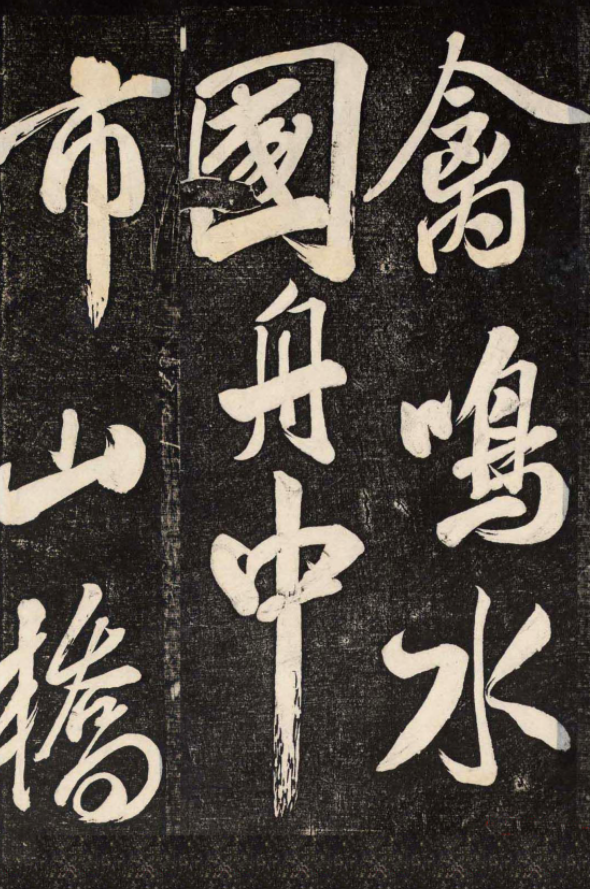 禽鳴水
國舟中
市山橋